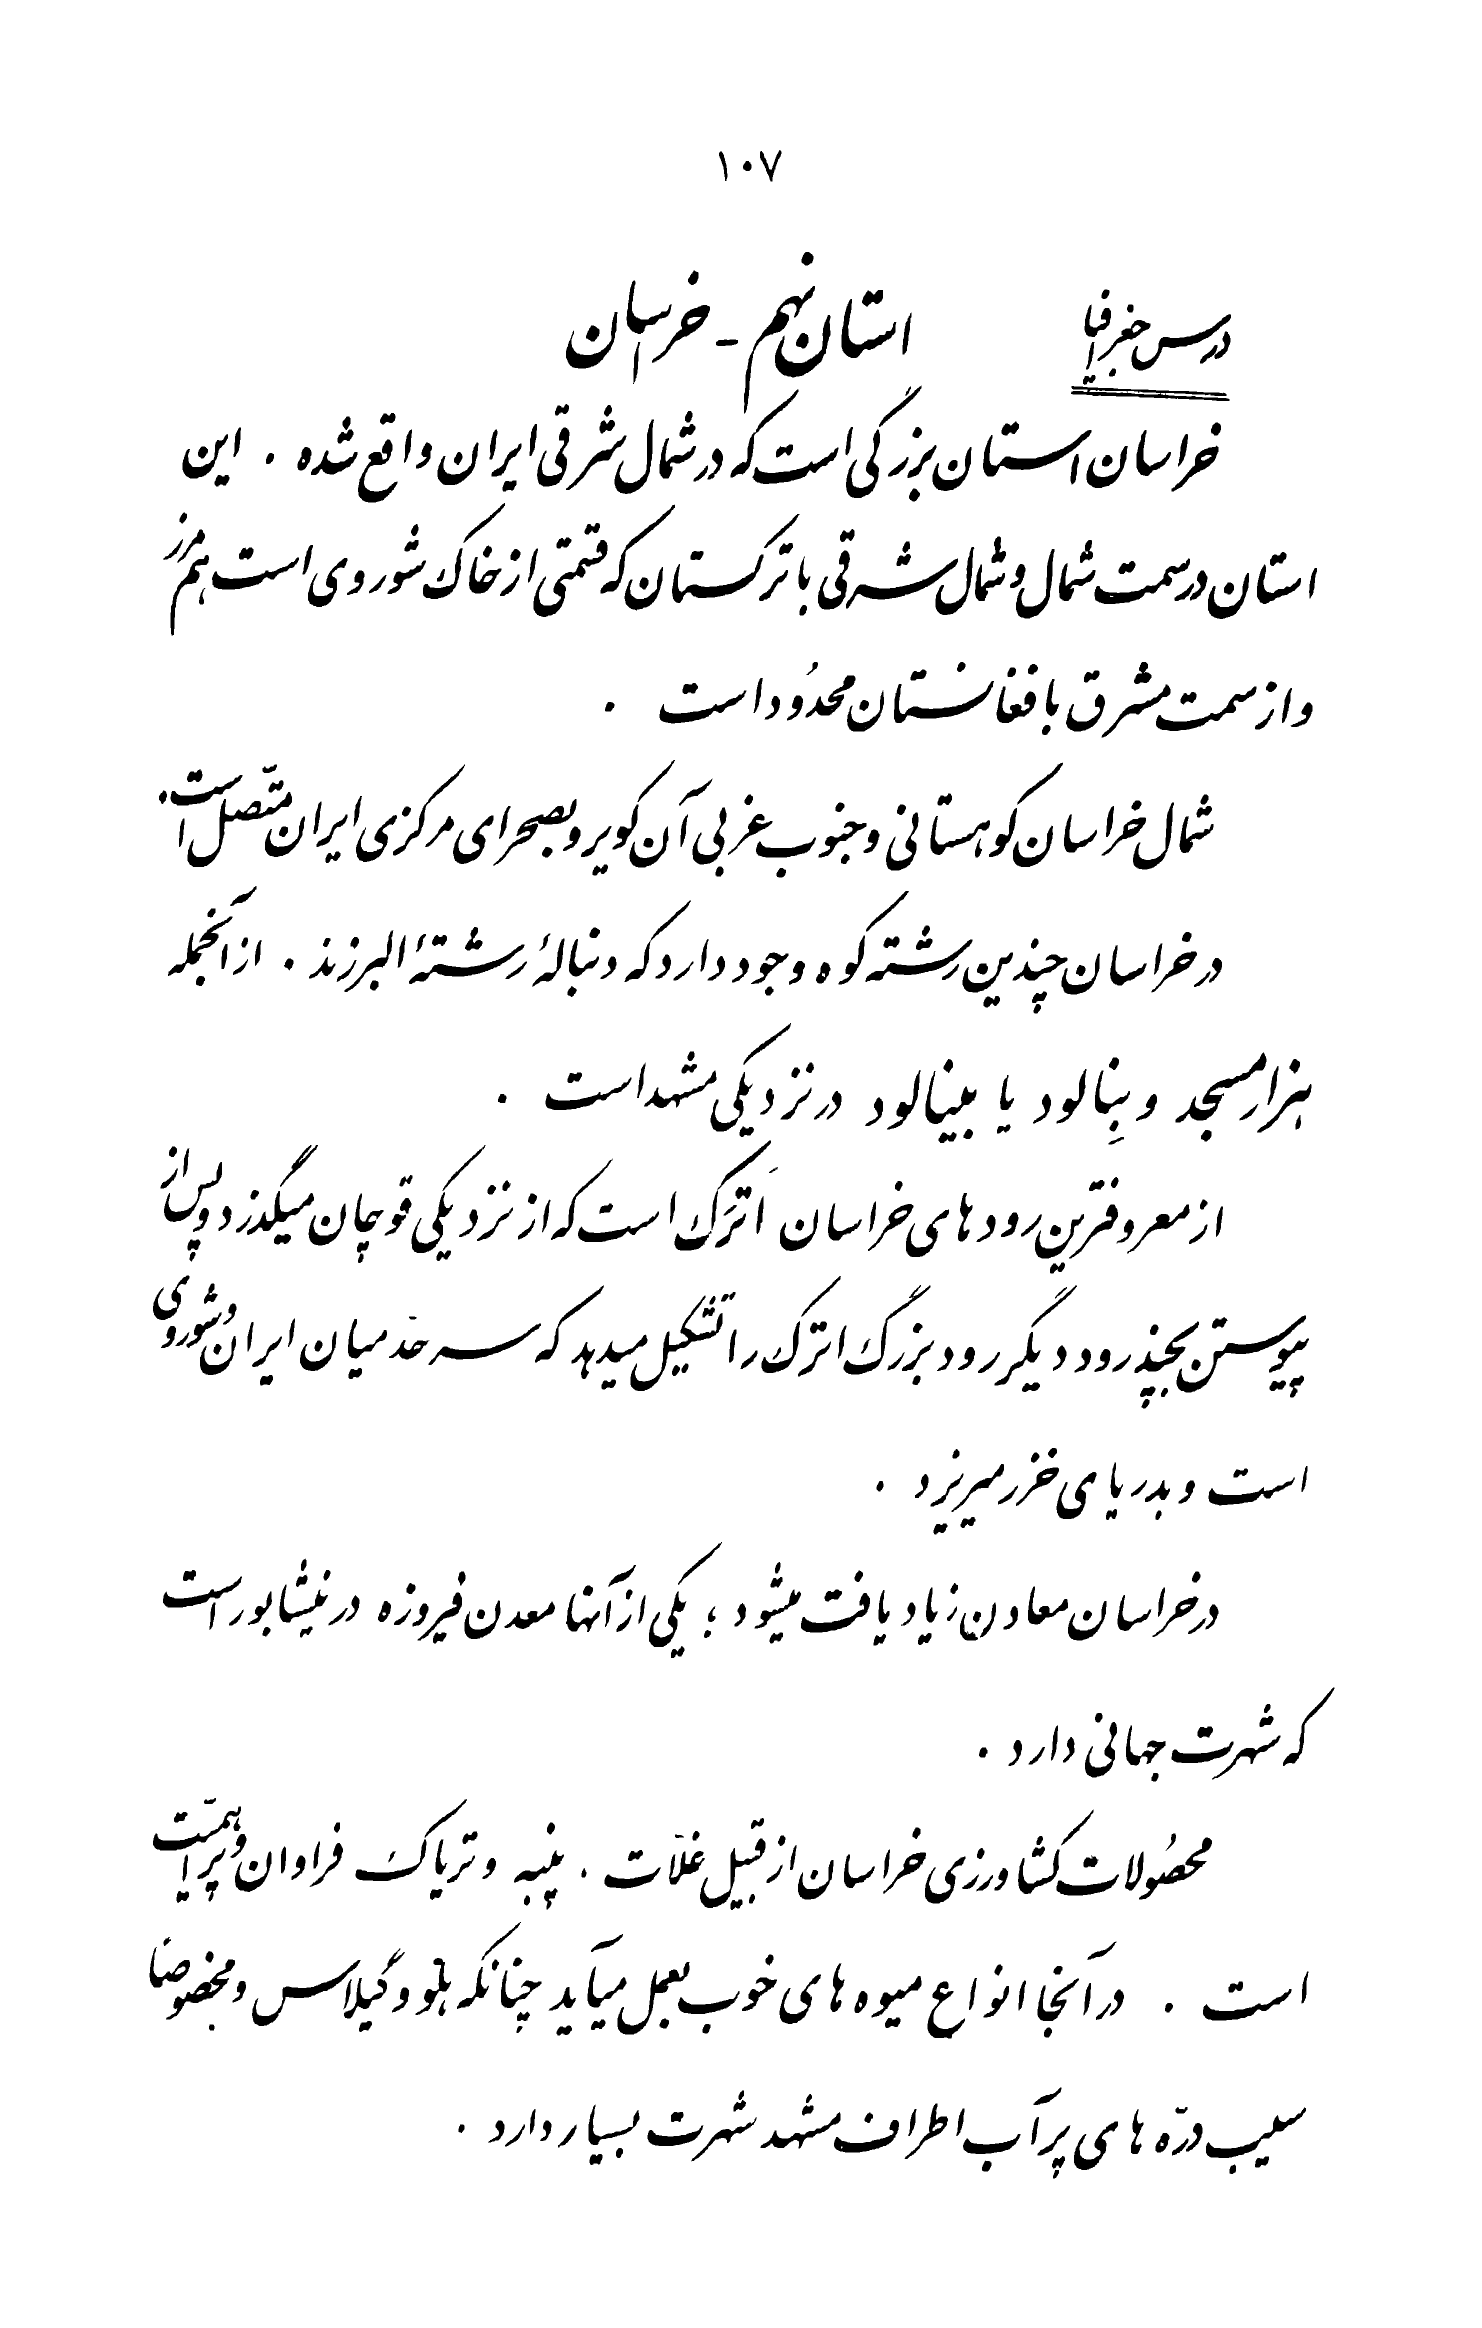 ۱۰۷
درس جغرافیا استان نهم - خراسان
خراسان استان بزرگی است که در شمال شرقی ایران واقع شده . این
استان در سمت شمال و شمال شرقی با ترکستان که قسمتی از خاک شوروی است هم مرز
و از سمت مشرق بافغانستان محدُود است .
شمال خراسان کوهستانی و جنوب غربی آن کویر و بصحرای مرکزی ایران متّصل است .
در خراسان چندین رشته کوه وجود دارد که دنبالهٔ رشتهٔ البرزند . از آنجمله
هزار مسجد و بِنالود یا بینالود در نزدیکی مشهد است .
از معروفترین رودهای خراسان اَترَک است که از نزدیکی قوچان میگذرد و پس از
پیوستن بچند رود دیگر رود بزرگ اترک را تشکیل میدهد که سر حدّ میان ایران و شوروی
است و بدریای خزر میریزد .
در خراسان معادن زیاد یافت میشود ؛ یکی از آنها معدن فیروزه در نیشابور است
که شهرت جهانی دارد .
محصُولات کشاورزی خراسان از قبیل غلّات . پنبه و تریاک فراوان و پر اهمیّت
است . در آنجا انواع میوه های خوب بعمل میآید چنانکه هلو و گیلاس و مخصوصاً
سیب درّه های پر آب اطراف مشهد شهرت بسیار دارد .